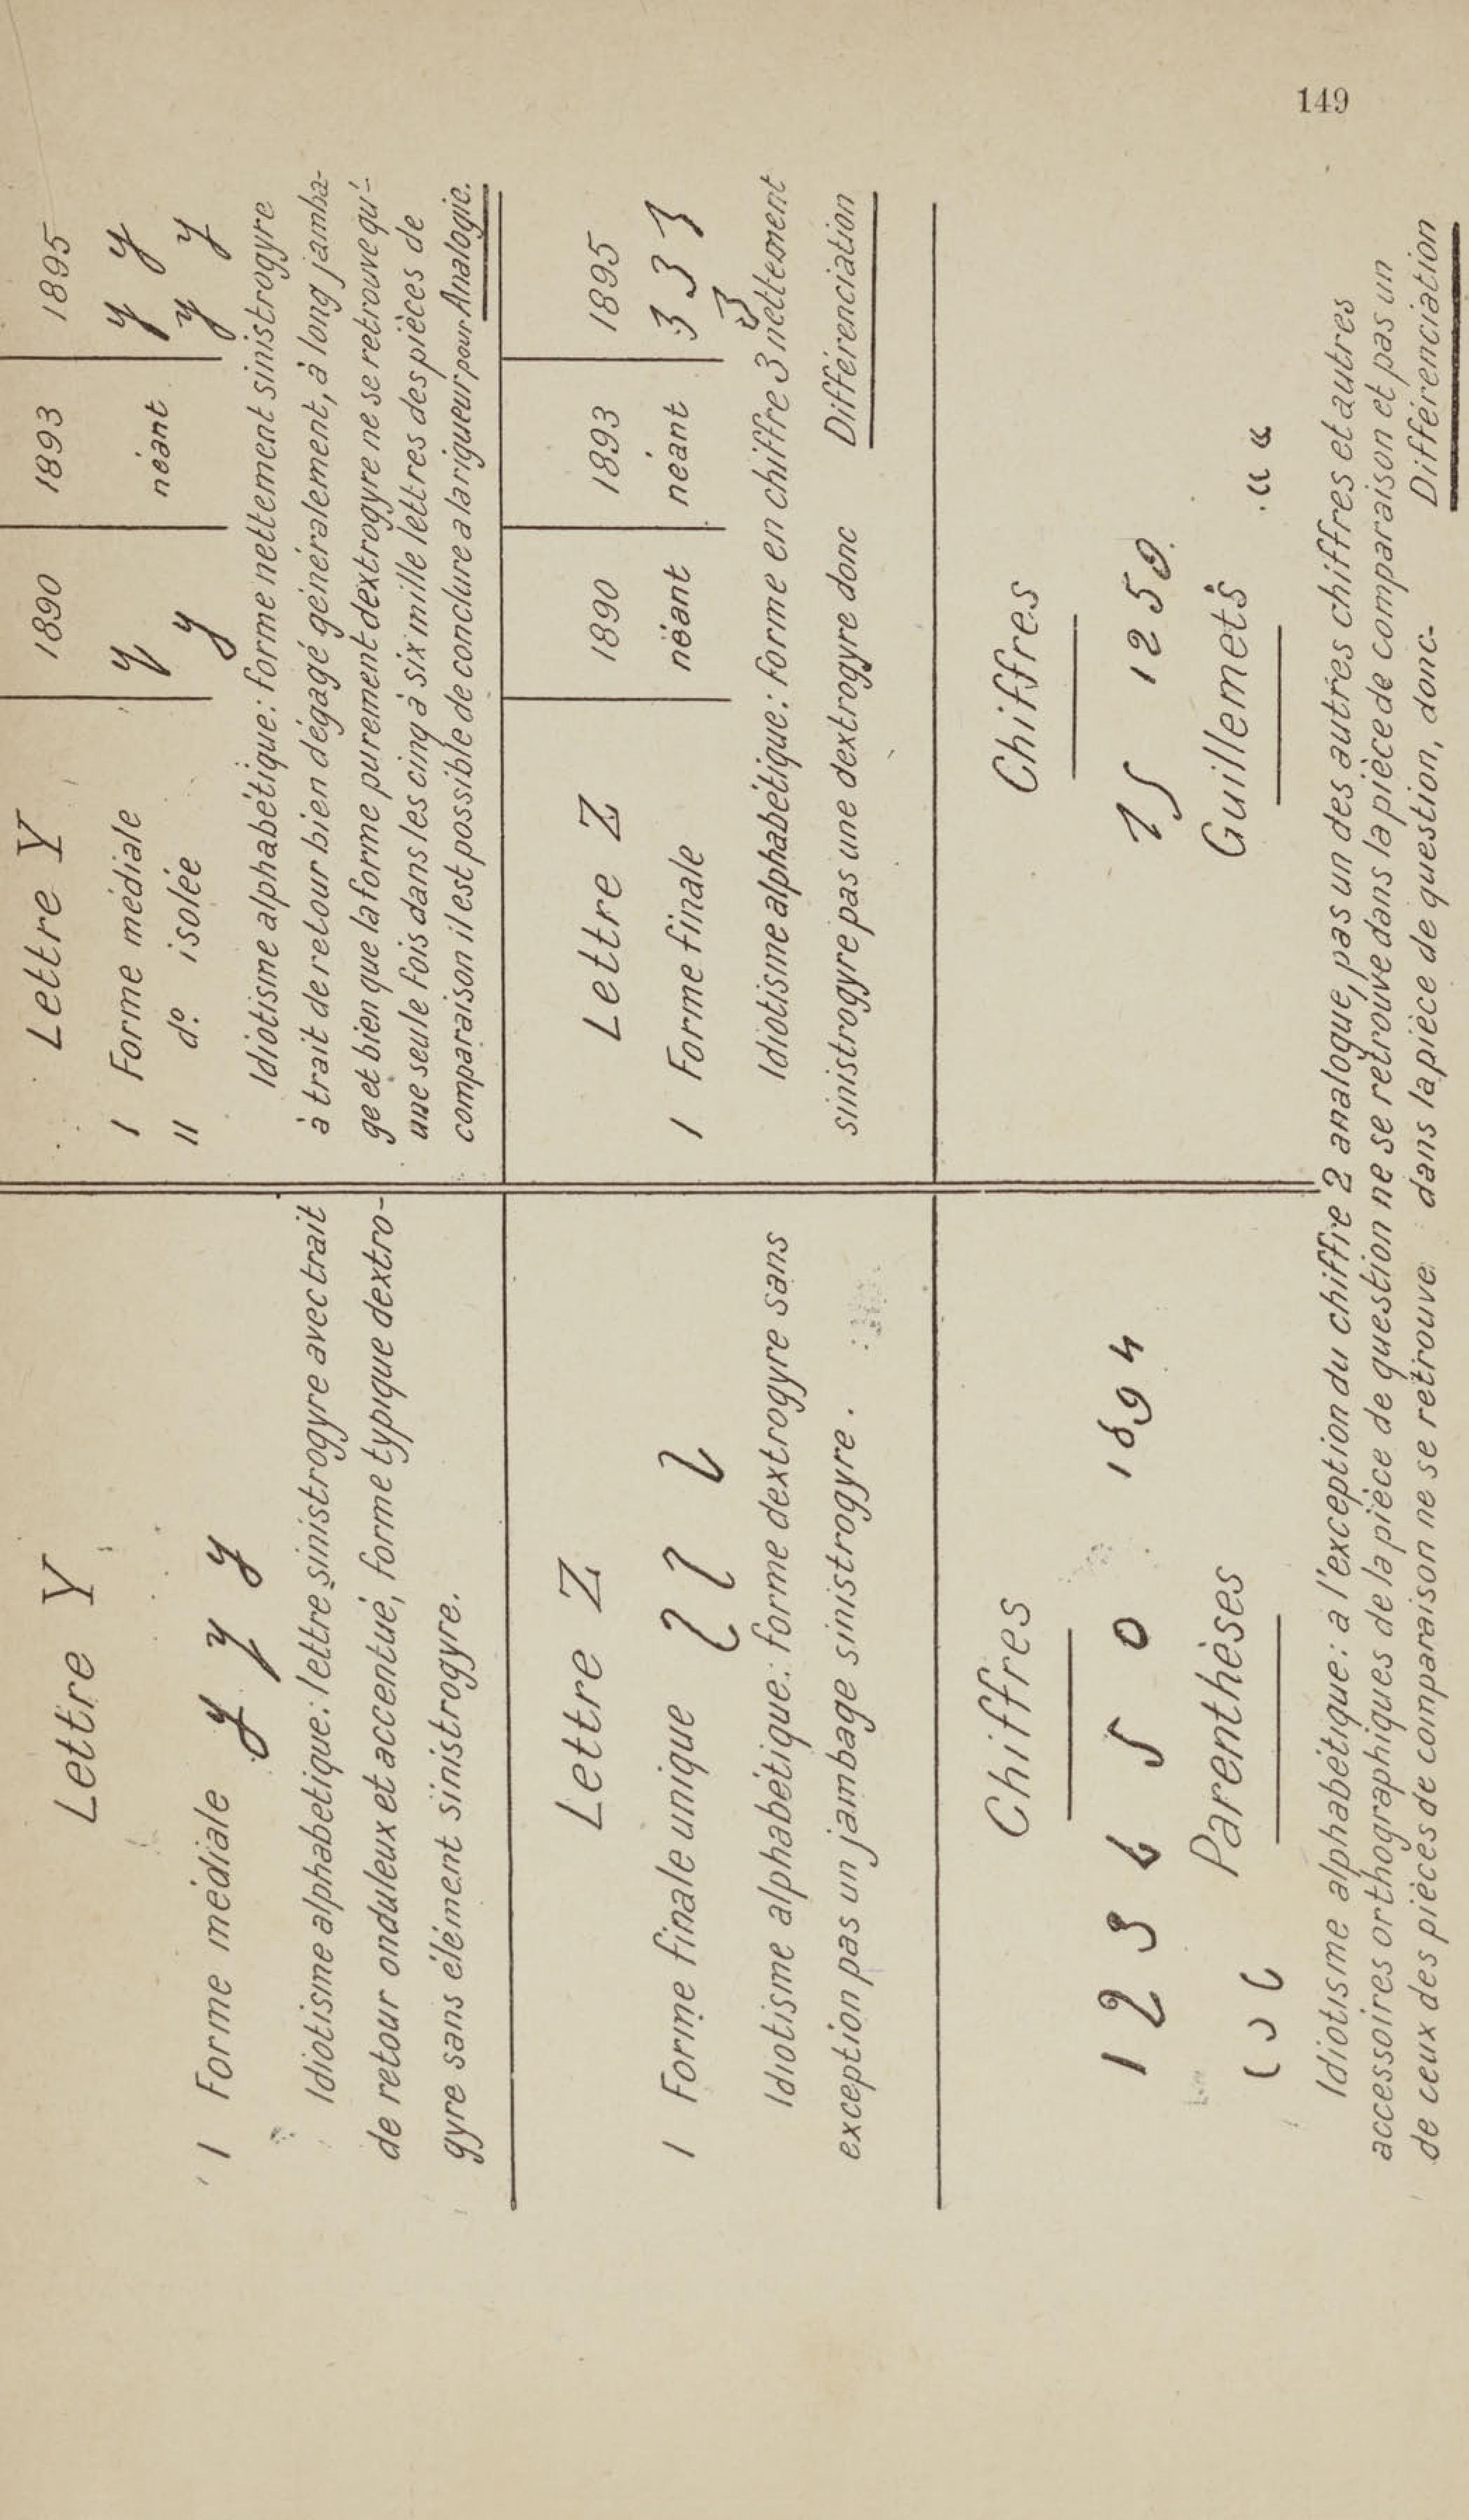 149
Lettre Y
1 Forme médiale y y y
Idiotisme alphabétique: lettre sinistrogyre avec trait
de retour onduleux et accentué, forme typique dextro-
gyre sans élément sinistrogyre.
Lettre Y 1890 1893 1895
1 Forme médiale y néant y y
11 d° isolée y y y
Idiotisme alphabétique: forme nettement sinistrogyre
à trait de retour bien dégagé généralement, à long jamba-
ge et bien que la forme purement dextrogyre ne se retrouve qu'-
une seule fois dans les cinq à six mille lettres des pièces de
comparaison il est possible de conclure a la rigueur pour Analogie.
Lettre Z
1 Forme finale unique
Idiotisme alphabétique: forme dextrogyre sans
exception pas un jambage sinistrogyre.
Lettre Z 1890 1893 1895
1 Forme finale néant néant 3 3 3
3
Idiotisme alphabétique: forme en chiffre 3 nettement
sinistrogyre pas une dextrogyre donc Différenciation
Chiffres
1 2 3 6 5 0 1894
Parenthèses
( ) (
Chiffres
25 1250
Guillemets
" "
Idiotisme alphabétique: a l'exception du chiffre 2 analogue, pas un des autres chiffres et autres
accessoires orthographiques de la pièce de question ne se retrouve dans la pièce de comparaison et pas un
de ceux des pièces de comparaison ne se retrouve dans la pièce de question, donc- Différenciation